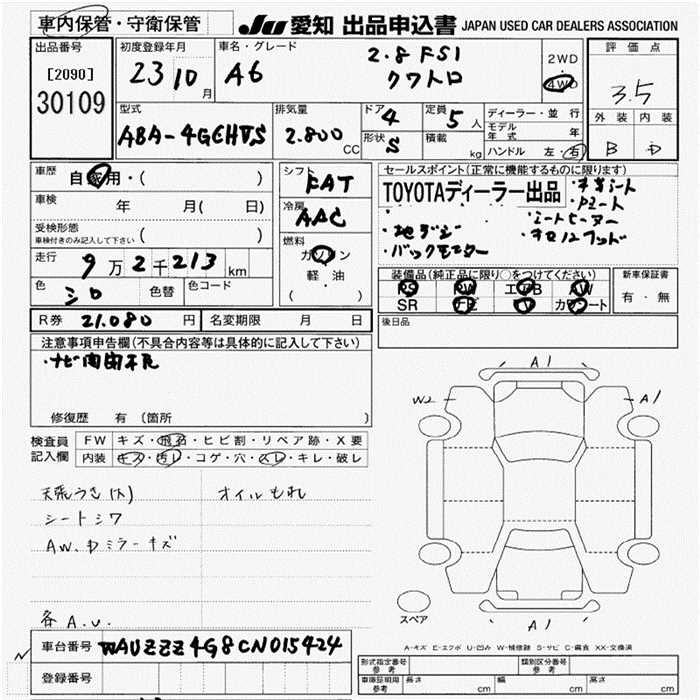 車内保管・守衛保管
JU 愛知 出品申込書 JAPAN USED CAR DEALERS ASSOCIATION
出品番号
[2090]
30109
初度登録年月
23 10月
車名・グレード
A6
2.8 FSI
クワトロ
2WD
4WD
評価点
3.5
外装 内装
B D
型式
ABA-4GCHVS
排気量
2.800 CC
ドア 4
形状 S
定員 5 人
積載 kg
ディーラー・並行
モデル年式 年
ハンドル 左・右
車歴 自家用・( )
車検 年 月( 日)
受検形態
車検付きのみ記入して下さい ( )
走行 9万2千213km
色 シロ 色替 色コード
シフト FAT
冷房 AAC
燃料
ガソリン
軽・油
( )
セールスポイント(正常に機能するものに限ります)
TOYOTAディーラー出品
・本革シート
・Pシート
・シートヒーター
・地デジ
・バックモニター
装備品(純正品に限り○をつけてください)
PS PW エアB AW
SR ナビ TV カワシート
新車保証書
有・無
R券 21.080 円 名変期限 月 日
後日品
注意事項申告欄(不具合内容等は具体的に記入して下さい)
・ナビ開閉不良
修復歴 有 (箇所 )
検査員記入欄
FW キズ・飛石・ヒビ割・リペア跡・X要
内装 キズ・汚レ・コゲ・穴・スレ・キレ・破レ
天張うき(大) オイルもれ
シートシワ
AW、Dミラーキズ
各A.U.
A1
W2 A1
A1
スペア
A-キズ E-エクボ U-凹み W-補修跡 S-サビ C-腐食 XX-交換済
車台番号 WAUZZZ4G8CN015424
登録番号
型式指定番号 参考 類別区分番号 参考
車庫証明用 参考 長さ cm 幅 cm 高さ cm